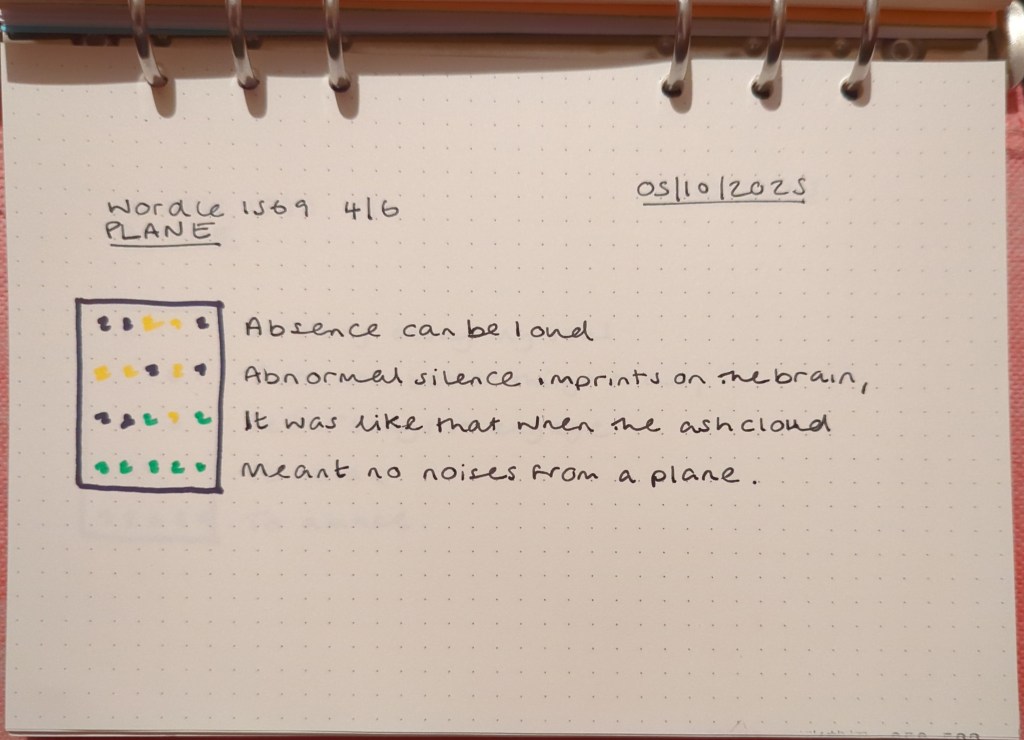 Wordle 1569 4/6
PLANE
05/10/2025
Absence can be loud
Abnormal silence imprints on the brain,
It was like that when the ash cloud
Meant no noises from a plane.